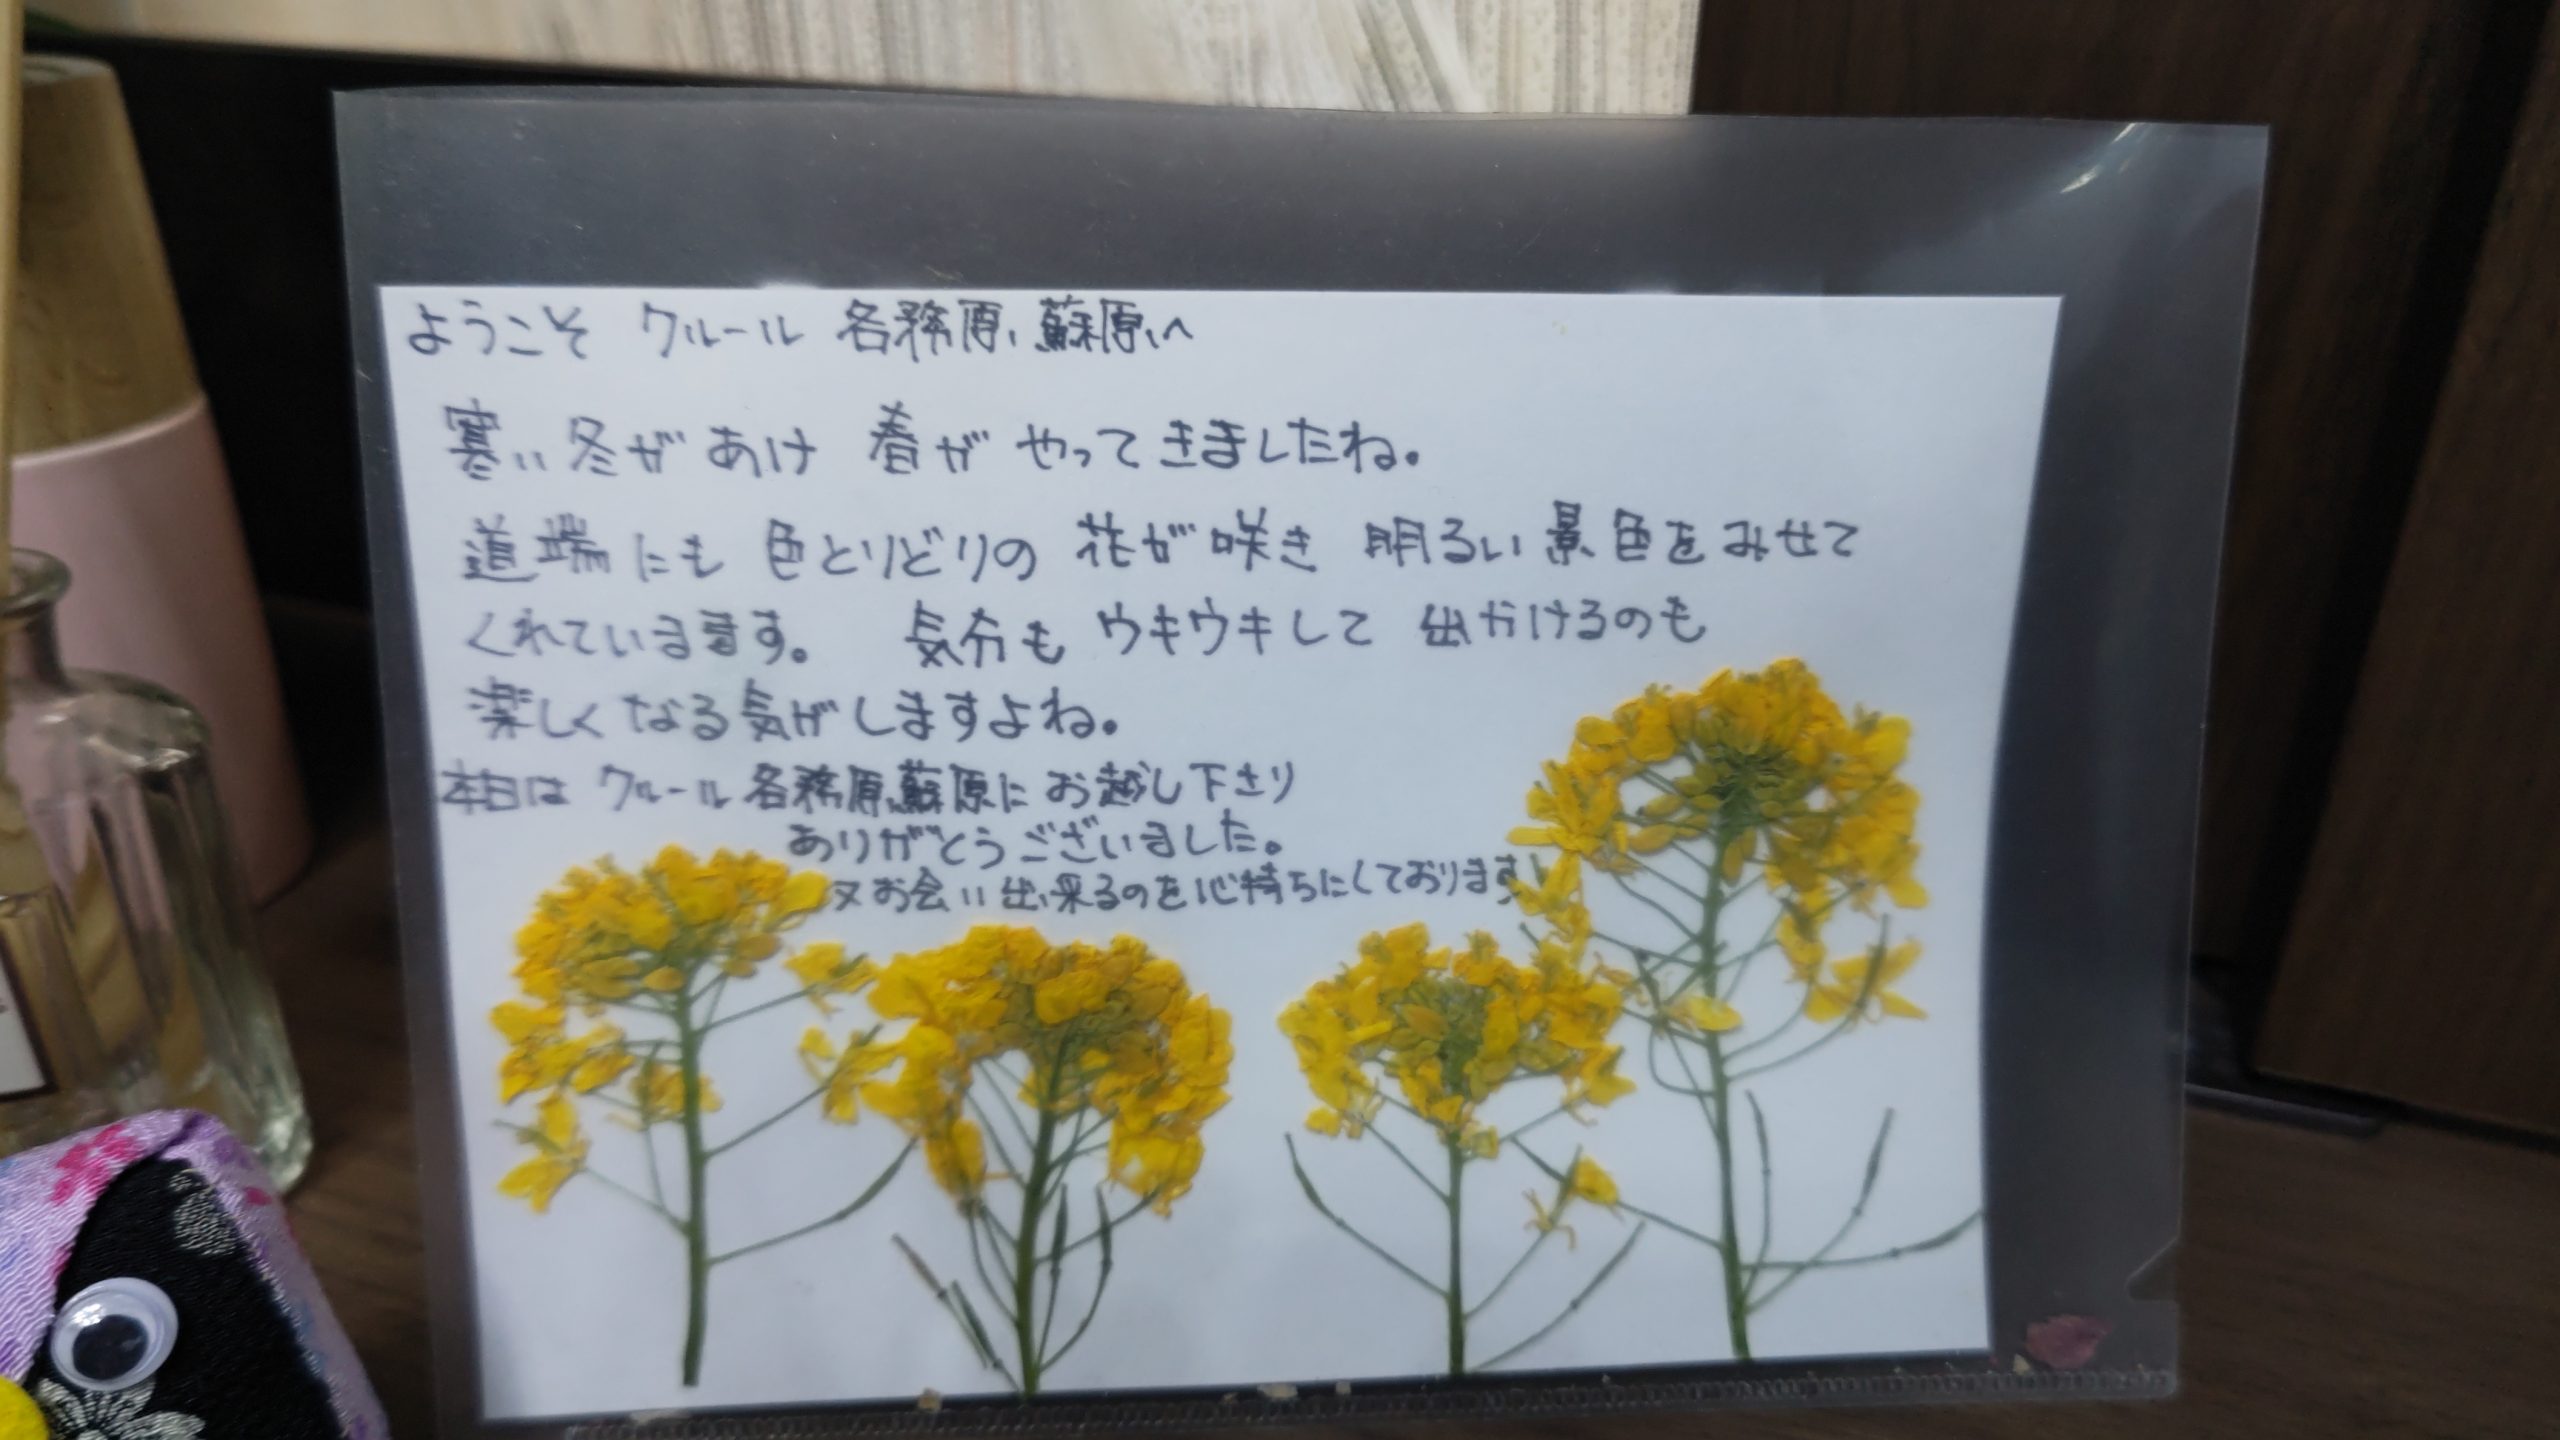 ようこそ クルール 各務原、蘇原へ
寒い冬があけ 春が やってきましたね。
道端にも 色とりどりの 花が咲き 明るい景色をみせて
くれています。 気分も ウキウキして 出かけるのも
楽しくなる気がしますよね。
本日は クルール各務原、蘇原に お越し下さり
ありがとうございました。
又お会い出来るのを心待ちにしております!